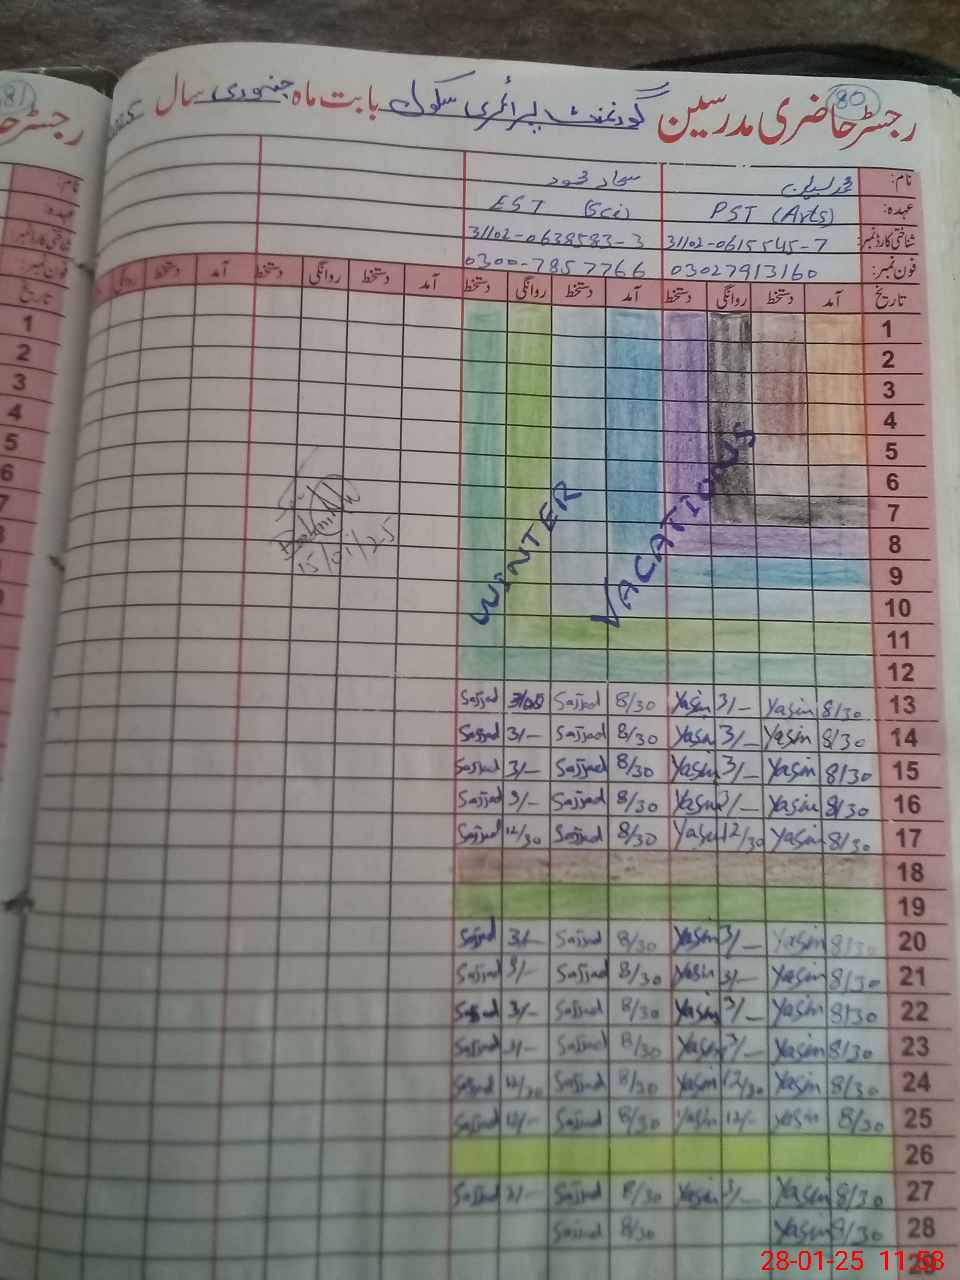 80
81
رجسٹر حاضری مدرسین گورنمنٹ پرائمری سکول بابت ماہ جنوری سال
نام: محمد یٰسین سجاد محمود
عہدہ: PST (Arts) EST (Sci)
شناختی کارڈ نمبر: 31102-0615545-7 31102-0638583-3
فون نمبر: 03027913160 0300-7857766
تاریخ آمد دستخط روانگی دستخط آمد دستخط روانگی دستخط آمد دستخط روانگی دستخط آمد دستخط روانگی
1
2
3
4
5
6
7
8
9
10
11
12
WINTER VACATIONS
15/01/25
13 8/30 Yasin 3/- Yasin 8/30 Sajjad Sajjad
14 8/30 Yasin 3/- Yasin 8/30 Sajjad 3/- Sajjad
15 8/30 Yasin 3/- Yasin 8/30 Sajjad 3/- Sajjad
16 8/30 Yasin 3/- Yasin 8/30 Sajjad 3/- Sajjad
17 8/30 Yasin 12/30 Yasin 8/30 Sajjad 12/30 Sajjad
18
19
20 8/30 Yasin 3/- Yasin 8/30 Sajjad 3/- Sajjad
21 8/30 Yasin 3/- Yasin 8/30 Sajjad 3/- Sajjad
22 8/30 Yasin 3/- Yasin 8/30 Sajjad 3/- Sajjad
23 8/30 Yasin 3/- Yasin 8/30 Sajjad 3/- Sajjad
24 8/30 Yasin 12/30 Yasin 8/30 Sajjad 12/30 Sajjad
25 8/30 Yasin 12/- Yasin 8/30 Sajjad 12/- Sajjad
26
27 8/30 Yasin 3/- Yasin 8/30 Sajjad 3/- Sajjad
28 8/30 Yasin 8/30 Sajjad
29
28-01-25 11:58